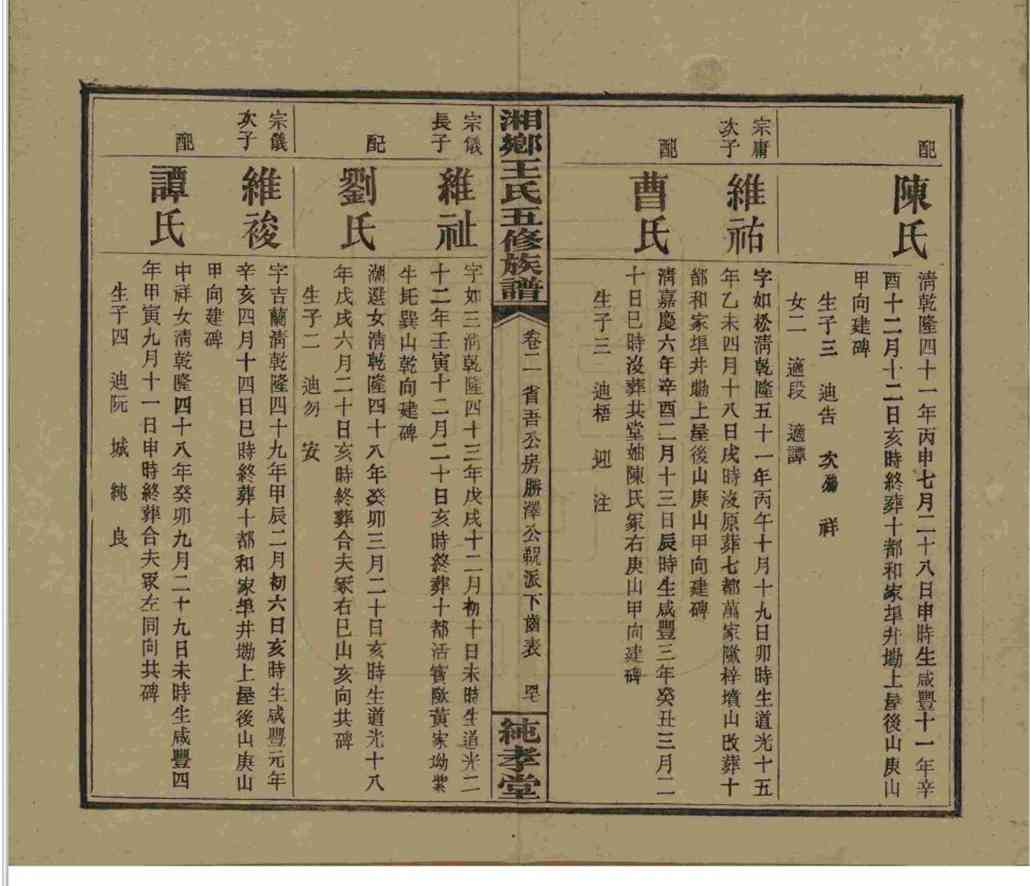 配
陳氏
清乾隆四十一年丙申七月二十八日申時生咸豐十一年辛
酉十二月十二日亥時終葬十都和家埠井塝上屋後山庚山
甲向建碑
生子三 迪告 次 祥
女二 適段 適譚
宗庸
次子
維祐
字如松清乾隆五十一年丙午十月十九日卯時生道光十五
年乙未四月十八日戌時沒原葬七都萬家隞梓墳山改葬十
都和家埠井塝上屋後山庚山甲向建碑
配
曹氏
清嘉慶六年辛酉二月十三日辰時生咸豐三年癸丑三月二
十日巳時沒葬共堂妯陳氏冢右庚山甲向建碑
生子三 迪梧 迎 注
湘鄉王氏五修族譜
卷二 省吾公房勝澤公 派下齒表
純孝堂
宗儀
長子
維祉
字如三清乾隆四十三年戊戌十二月初十日未時生道光二
十二年壬寅十二月二十日亥時終葬十都活 隞黃家坳紫
牛 巽山乾向建碑
配
劉氏
湖選女清乾隆四十八年癸卯三月二十日亥時生道光十八
年戊戌六月二十日亥時終葬合夫冢右巳山亥向共碑
生子二 迪勿 安
宗儀
次子
維祾
字吉蘭清乾隆四十九年甲辰二月初六日亥時生咸豐元年
辛亥四月十四日巳時終葬十都和家埠井塝上屋後山庚山
甲向建碑
配
譚氏
中祥女清乾隆四十八年癸卯九月二十九日未時生咸豐四
年甲寅九月十一日申時終葬合夫冢左同向共碑
生子四 迪阮 城 純 良